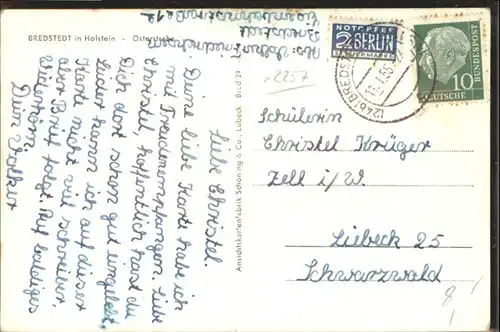 BREDSTEDT in Holstein - Osterstraße
Bredstedt
Liebe Christel.
Deine liebe Karte habe ich
mit Freuden empfangen. Liebe
Christel, hoffentlich hast du
Dich dort schon gut eingelebt.
Leider kann ich auf dieser
Karte nicht viel schreiben
aber Brief folgt. Auf baldiges
Wiederhören.
Dein Volker
Ansichtkartenfabrik Schöning & Co., Lübeck
2257
NOTOPFER
2 BERLIN
STEUERMARKE
(24b) BREDSTEDT
10
DEUTSCHE
Schülerin
Christel Krüger
Zell i/W.
Liebeck 25
Schwarzwald
8